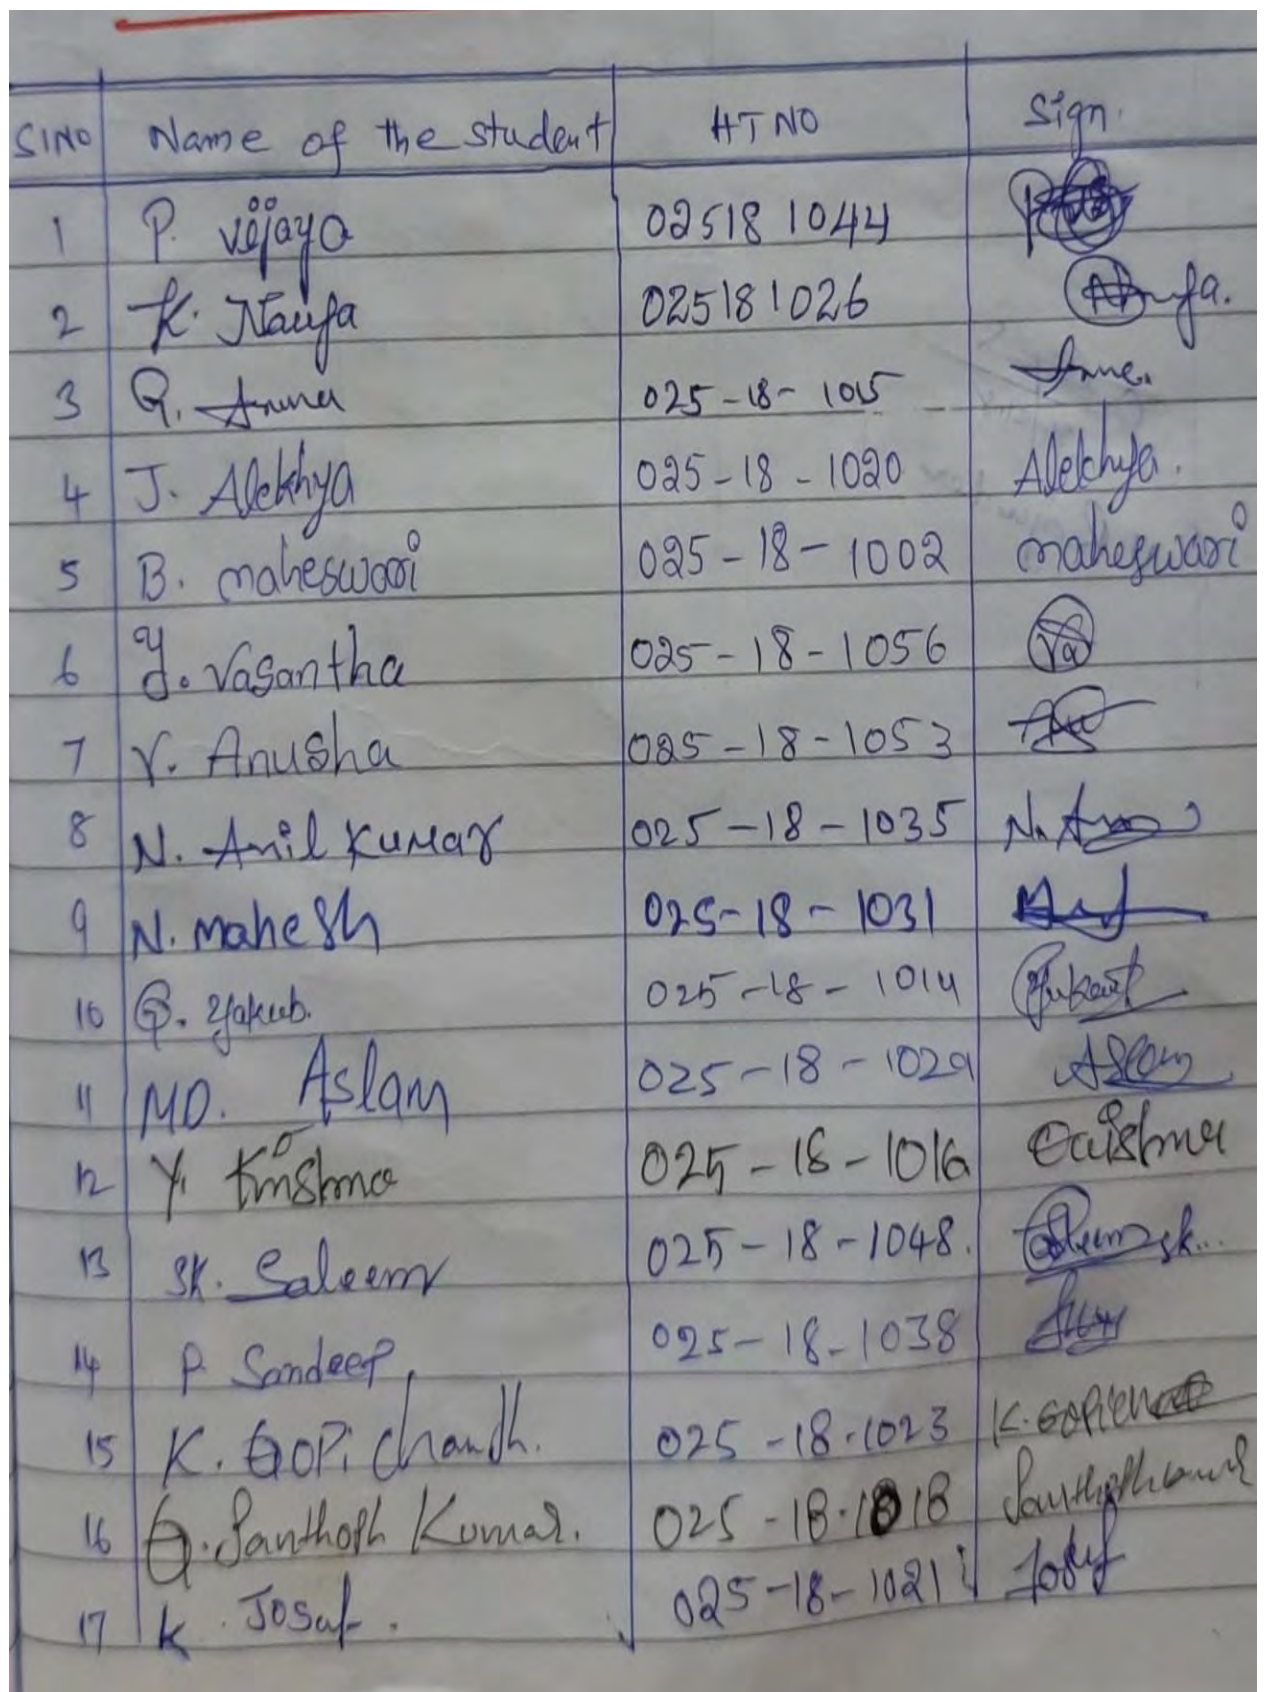 SINO Name of the student HT NO Sign.
1 P. vijaya 025181044
2 K. Navya 025181026
3 G. Aruna 025-18-1015
4 J. Alekhya 025-18-1020 Alekhya.
5 B. maheswari 025-18-1002 maheswari
6 Y. Vasantha 025-18-1056 Va
7 V. Anusha 025-18-1053
8 N. Anil Kumar 025-18-1035 N.
9 N. mahesh 025-18-1031
10 G. Yakub. 025-18-1014
11 MD. Aslam 025-18-1029 Aslam
12 Y. Krishna 025-18-1016
13 SK. Saleem 025-18-1048. sk..
14 P. Sandeep. 025-18-1038
15 K. GOPi chandh. 025-18-1023 K. GOPich
16 G. Santhosh Kumar. 025-18-1018
17 K. Josaf. 025-18-1021 Josuf